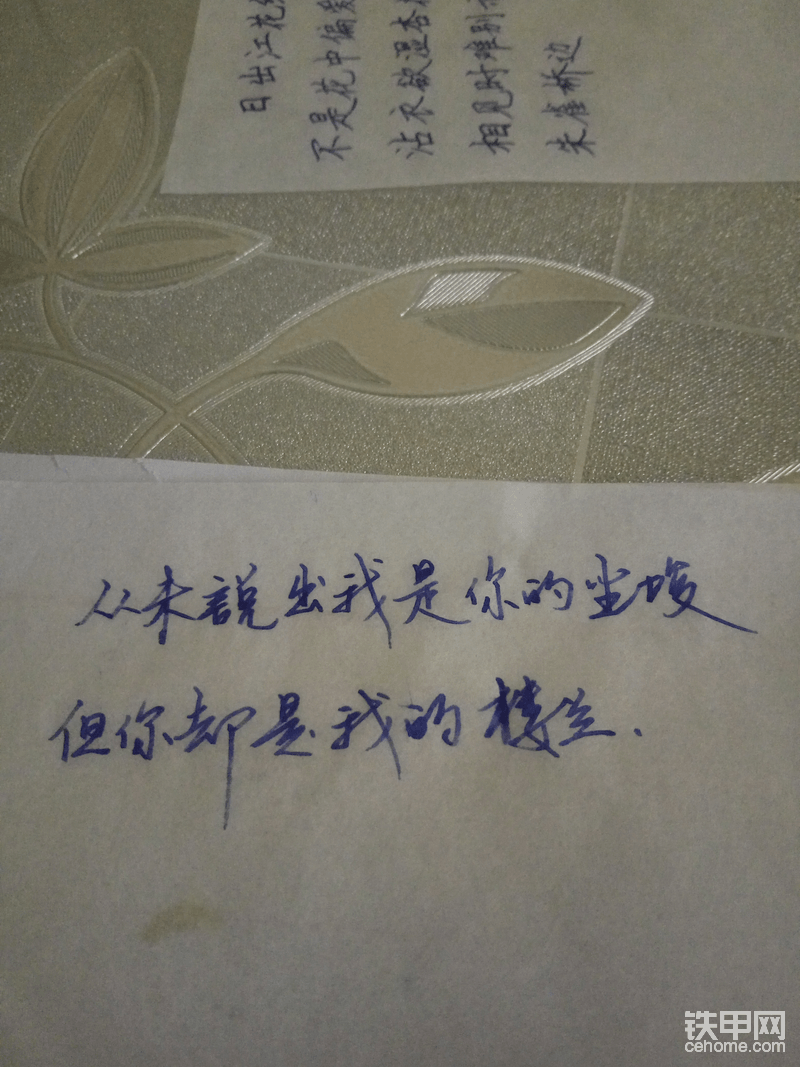 日出江花
不是花中偏
沾衣欲湿杏
相见时难别
朱雀桥边
从未說出我是你的尘埃
但你却是我的楼兰.
铁甲网
cehome.com